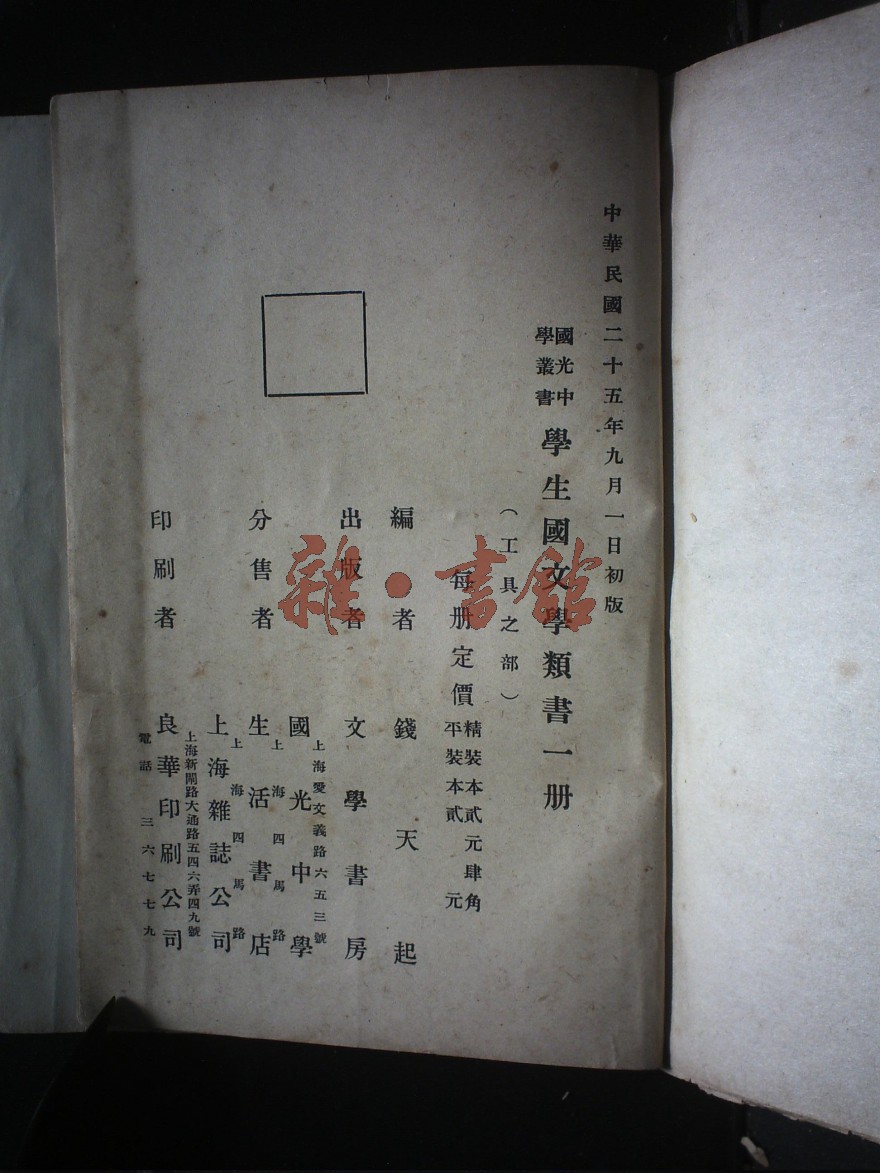 中華民國二十五年九月一日初版
國光中
學叢書
學生國文學類書一册
（工具之部）
每册定價
精裝本貳元肆角
平裝本貳元
編者 錢天起
出版者 文學書房
上海愛文義路六五三號
分售者 國光中學
上海四馬路
生活書店
上海四馬路
上海雜誌公司
上海新閘路大通路五四六弄四九號
印刷者 良華印刷公司
電話 三六七七九
雜·書館